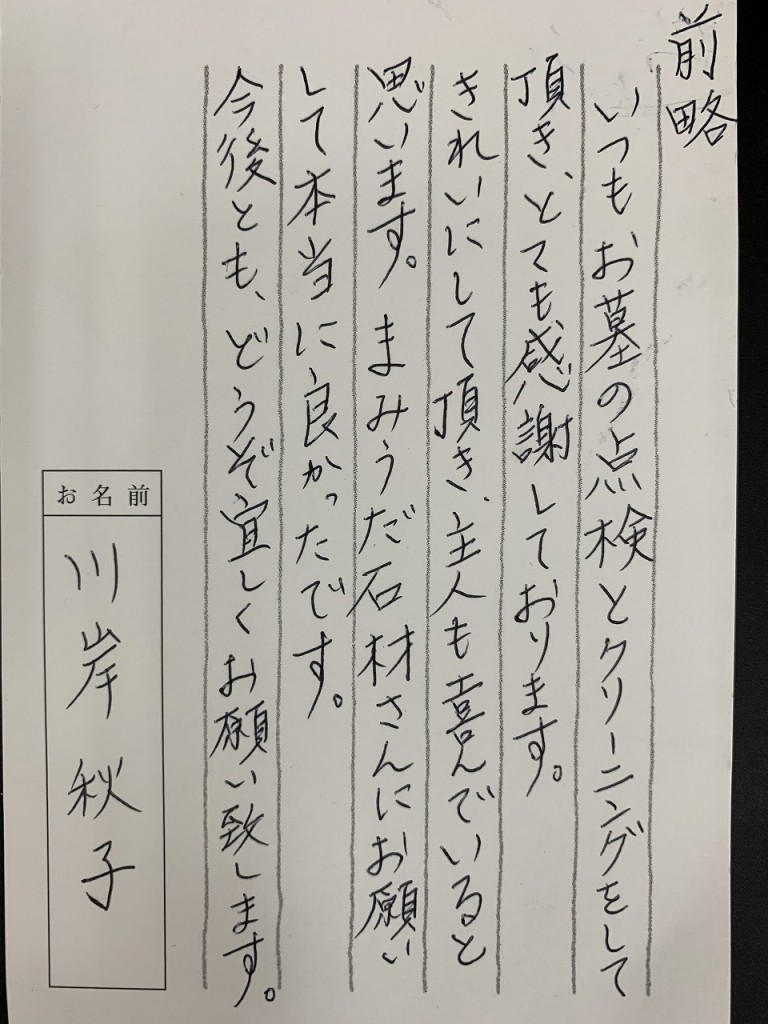 前略
いつもお墓の点検とクリーニングをして
頂き、とても感謝しております。
きれいにして頂き、主人も喜んでいると
思います。まみうだ石材さんにお願い
して本当に良かったです。
今後とも、どうぞ宜しくお願い致します。
お名前
川岸秋子